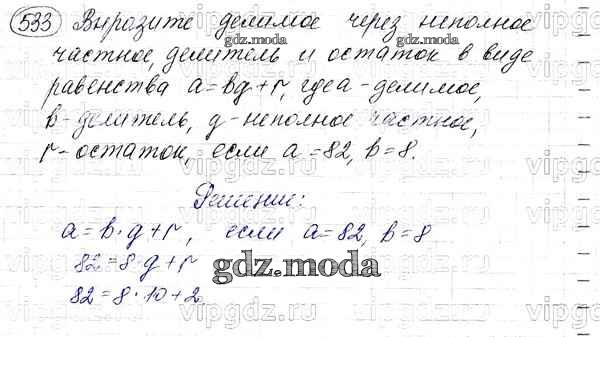 533 Выразите делимое через неполное
частное, делитель и остаток в виде
равенства a=bq+r, где a - делимое,
b - делитель, q - неполное частное,
r - остаток, если a = 82, b = 8.
Решение:
a = b · q + r, если a = 82, b = 8
82 = 8 · q + r
82 = 8 · 10 + 2
gdz.moda
gdz.moda
gdz.moda
vipgdz.ru